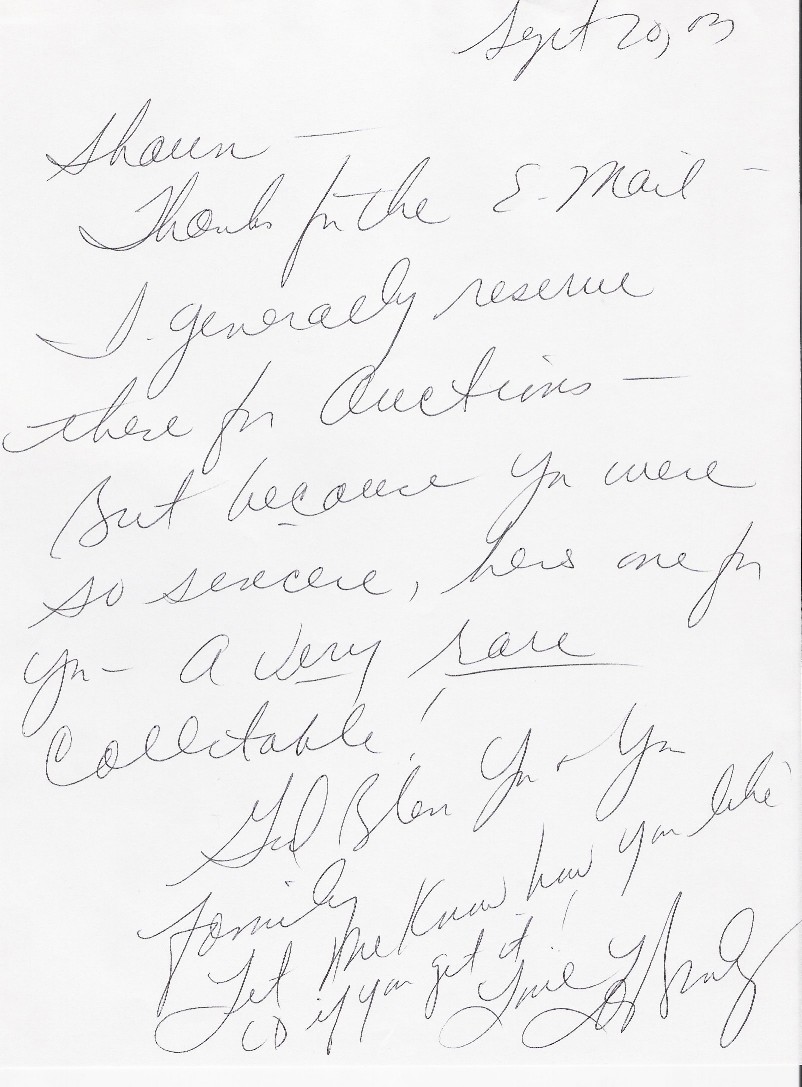 Sept 20, 03
Shaun —
Thanks for the E-Mail —
I generally reserve
these for Auctions —
But because you were
so sincere, here's one for
you — A very rare
Collectable!
God Bless You & Your
family
Let me know how you like
CD if you get it! Love